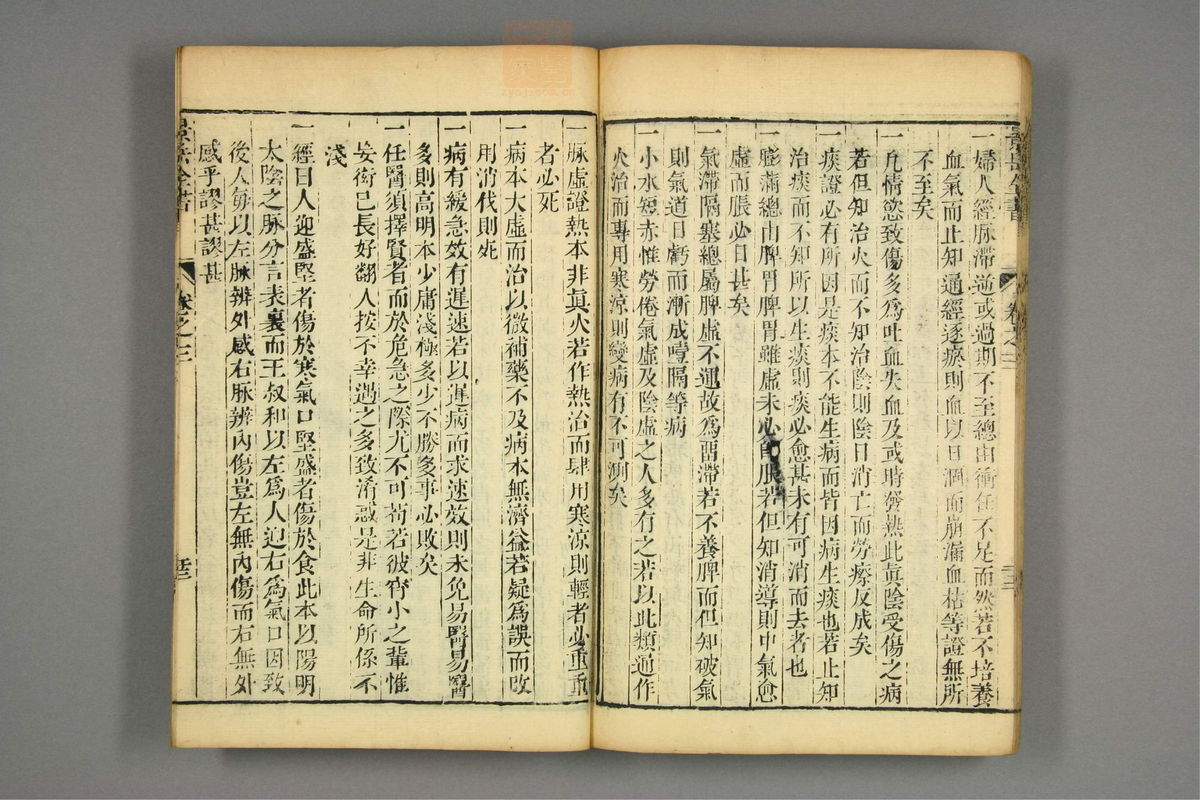 景岳全書 卷之三
一婦人經脉滯逆或過期不至總由衝任不足而然若不培養
血氣而止知通經逐瘀則血以日涸而崩漏血枯等證無所
不至矣
一凡情慾致傷多為吐血失血及或時發熱此眞陰受傷之病
若但知治火而不知治陰則陰日消亡而勞瘵反成矣
一痰證必有所因是痰本不能生病而皆因病生痰也若止知
治痰而不知所以生痰則痰必愈甚未有可消而去者也
一膨滿總由脾胃脾胃雖虛未必即脹若但知消導則中氣愈
虛而脹必日甚矣
一氣滯隔塞總屬脾虛不運故為畱滯若不養脾而但知破氣
則氣道日虧而漸成噎隔等病
一小水短赤惟勞倦氣虛及陰虛之人多有之若以此類通作
火治而專用寒涼則變病有不可測矣
一脉虛證熱本非眞火若作熱治而肆用寒涼則輕者必重重
者必死
一病本大虛而治以微補藥不及病本無濟益若疑為誤而改
用消伐則死
一病有緩急效有遲速若以遲病而求速效則未免易醫易醫
多則高明本少庸淺極多少不勝多事必敗矣
一任醫須擇賢者而於危急之際尤不可苟若彼宵小之輩惟
妄衒己長好翻人按不幸遇之多致淆惑是非生命所係不
淺
一經曰人迎盛堅者傷於寒氣口堅盛者傷於食此本以陽明
太陰之脉分言表裏而王叔和以左為人迎右為氣口因致
後人每以左脉辨外感右脉辨內傷豈左無內傷而右無外
感乎謬甚謬甚
景岳全書 卷之三
zysj.com.cn